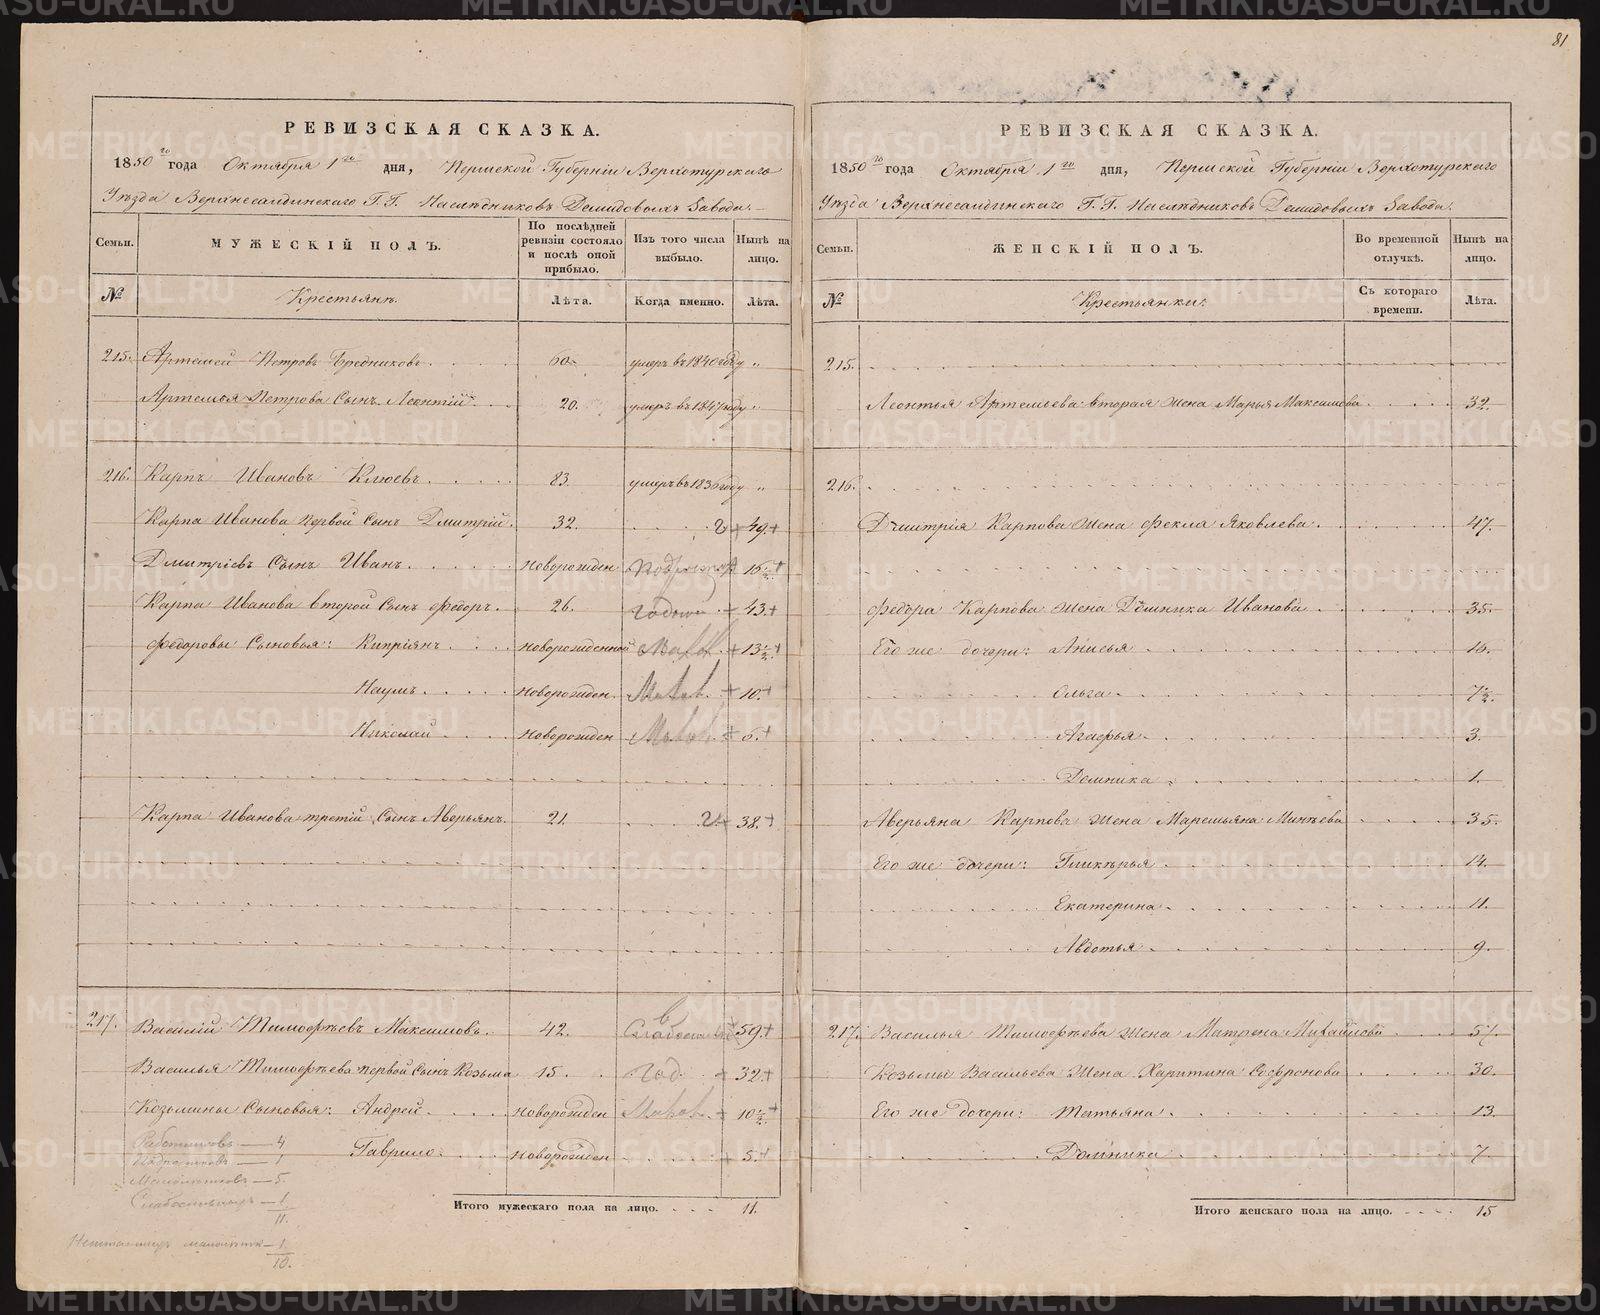 81
РЕВИЗСКАЯ СКАЗКА.
1850го года Октября 1го дня, Пермской Губерніи Верхотурскаго
Уѣзда Верхнесалдинскаго Г.Г. Наслѣдниковъ Демидовыхъ Завода.
Семьи. МУЖЕСКІЙ ПОЛЪ. По послѣдней ревизіи состояло и послѣ оной прибыло. Изъ того числа выбыло. Нынѣ на лицо.
№ Крестьянъ. Лѣта. Когда именно. Лѣта.
215. Артемей Петровъ Бредниковъ 60 умеръ въ 1840 году „
Артемья Петрова Сынъ Леонтій 20. умеръ въ 1847 году „
216. Карпъ Ивановъ Клюевъ 83. умеръ въ 1836 году „
Карпа Иванова первой Сынъ Дмитрій. 32. 49.
Дмитріевъ Сынъ Иванъ. новорожден 16 1/2
Карпа Иванова второй Сынъ Федоръ. 26. годной 43.
Федоровы Сыновья: Кипріянъ новорожденной 13 1/2
Наумъ новорожден. Малол. 10.
Николай новорожден Малол. 6.
Карпа Иванова третій Сынъ Аверьянъ. 21. 38.
217. Василій Тимофѣевъ Максимовъ. 42. 59.
Василья Тимофѣева первой Сынъ Козьма 15. Год. 32.
Козьмины Сыновья: Андрей новорожден Малол. 10 1/2
Гаврило новорожден 5.
Работниковъ — 4
Подростковъ — 1
Малолѣтковъ — 5
Слабосильныхъ — 1
11.
1.
10.
Итого мужескаго пола на лицо. 11.
РЕВИЗСКАЯ СКАЗКА.
1850го года Октября 1го дня, Пермской Губерніи Верхотурскаго
Уѣзда Верхнесалдинскаго Г.Г. Наслѣдниковъ Демидовыхъ Завода.
Семьи. ЖЕНСКІЙ ПОЛЪ. Во временной отлучкѣ. Нынѣ на лицо.
№ Крестьянки: Съ котораго времени. Лѣта.
215.
Леонтья Артемьева вторая жена Марья Максимова 32.
216.
Дмитрія Карпова жена Фекла Яковлева 47.
Федора Карпова жена Домника Иванова 35.
Его же дочери: Анисья 16.
Ольга 7 1/2.
Агафья 3.
Домника 1.
Аверьяна Карпова жена Маремьяна Минѣева 35.
Его же дочери: Гликѣрья 14.
Екатерина 11.
Авдотья 9.
217. Василья Тимофѣева жена Матрена Михайлова 57.
Козьмы Васильева жена Харитина Софронова 30.
Его же дочери: Татьяна 13.
Домника 7.
Итого женскаго пола на лицо. 15
METRIKI.GASO-URAL.RU